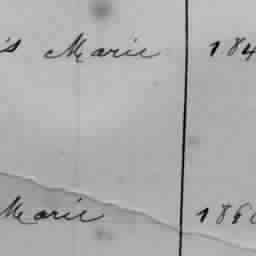 is Marie 184
Marie 186